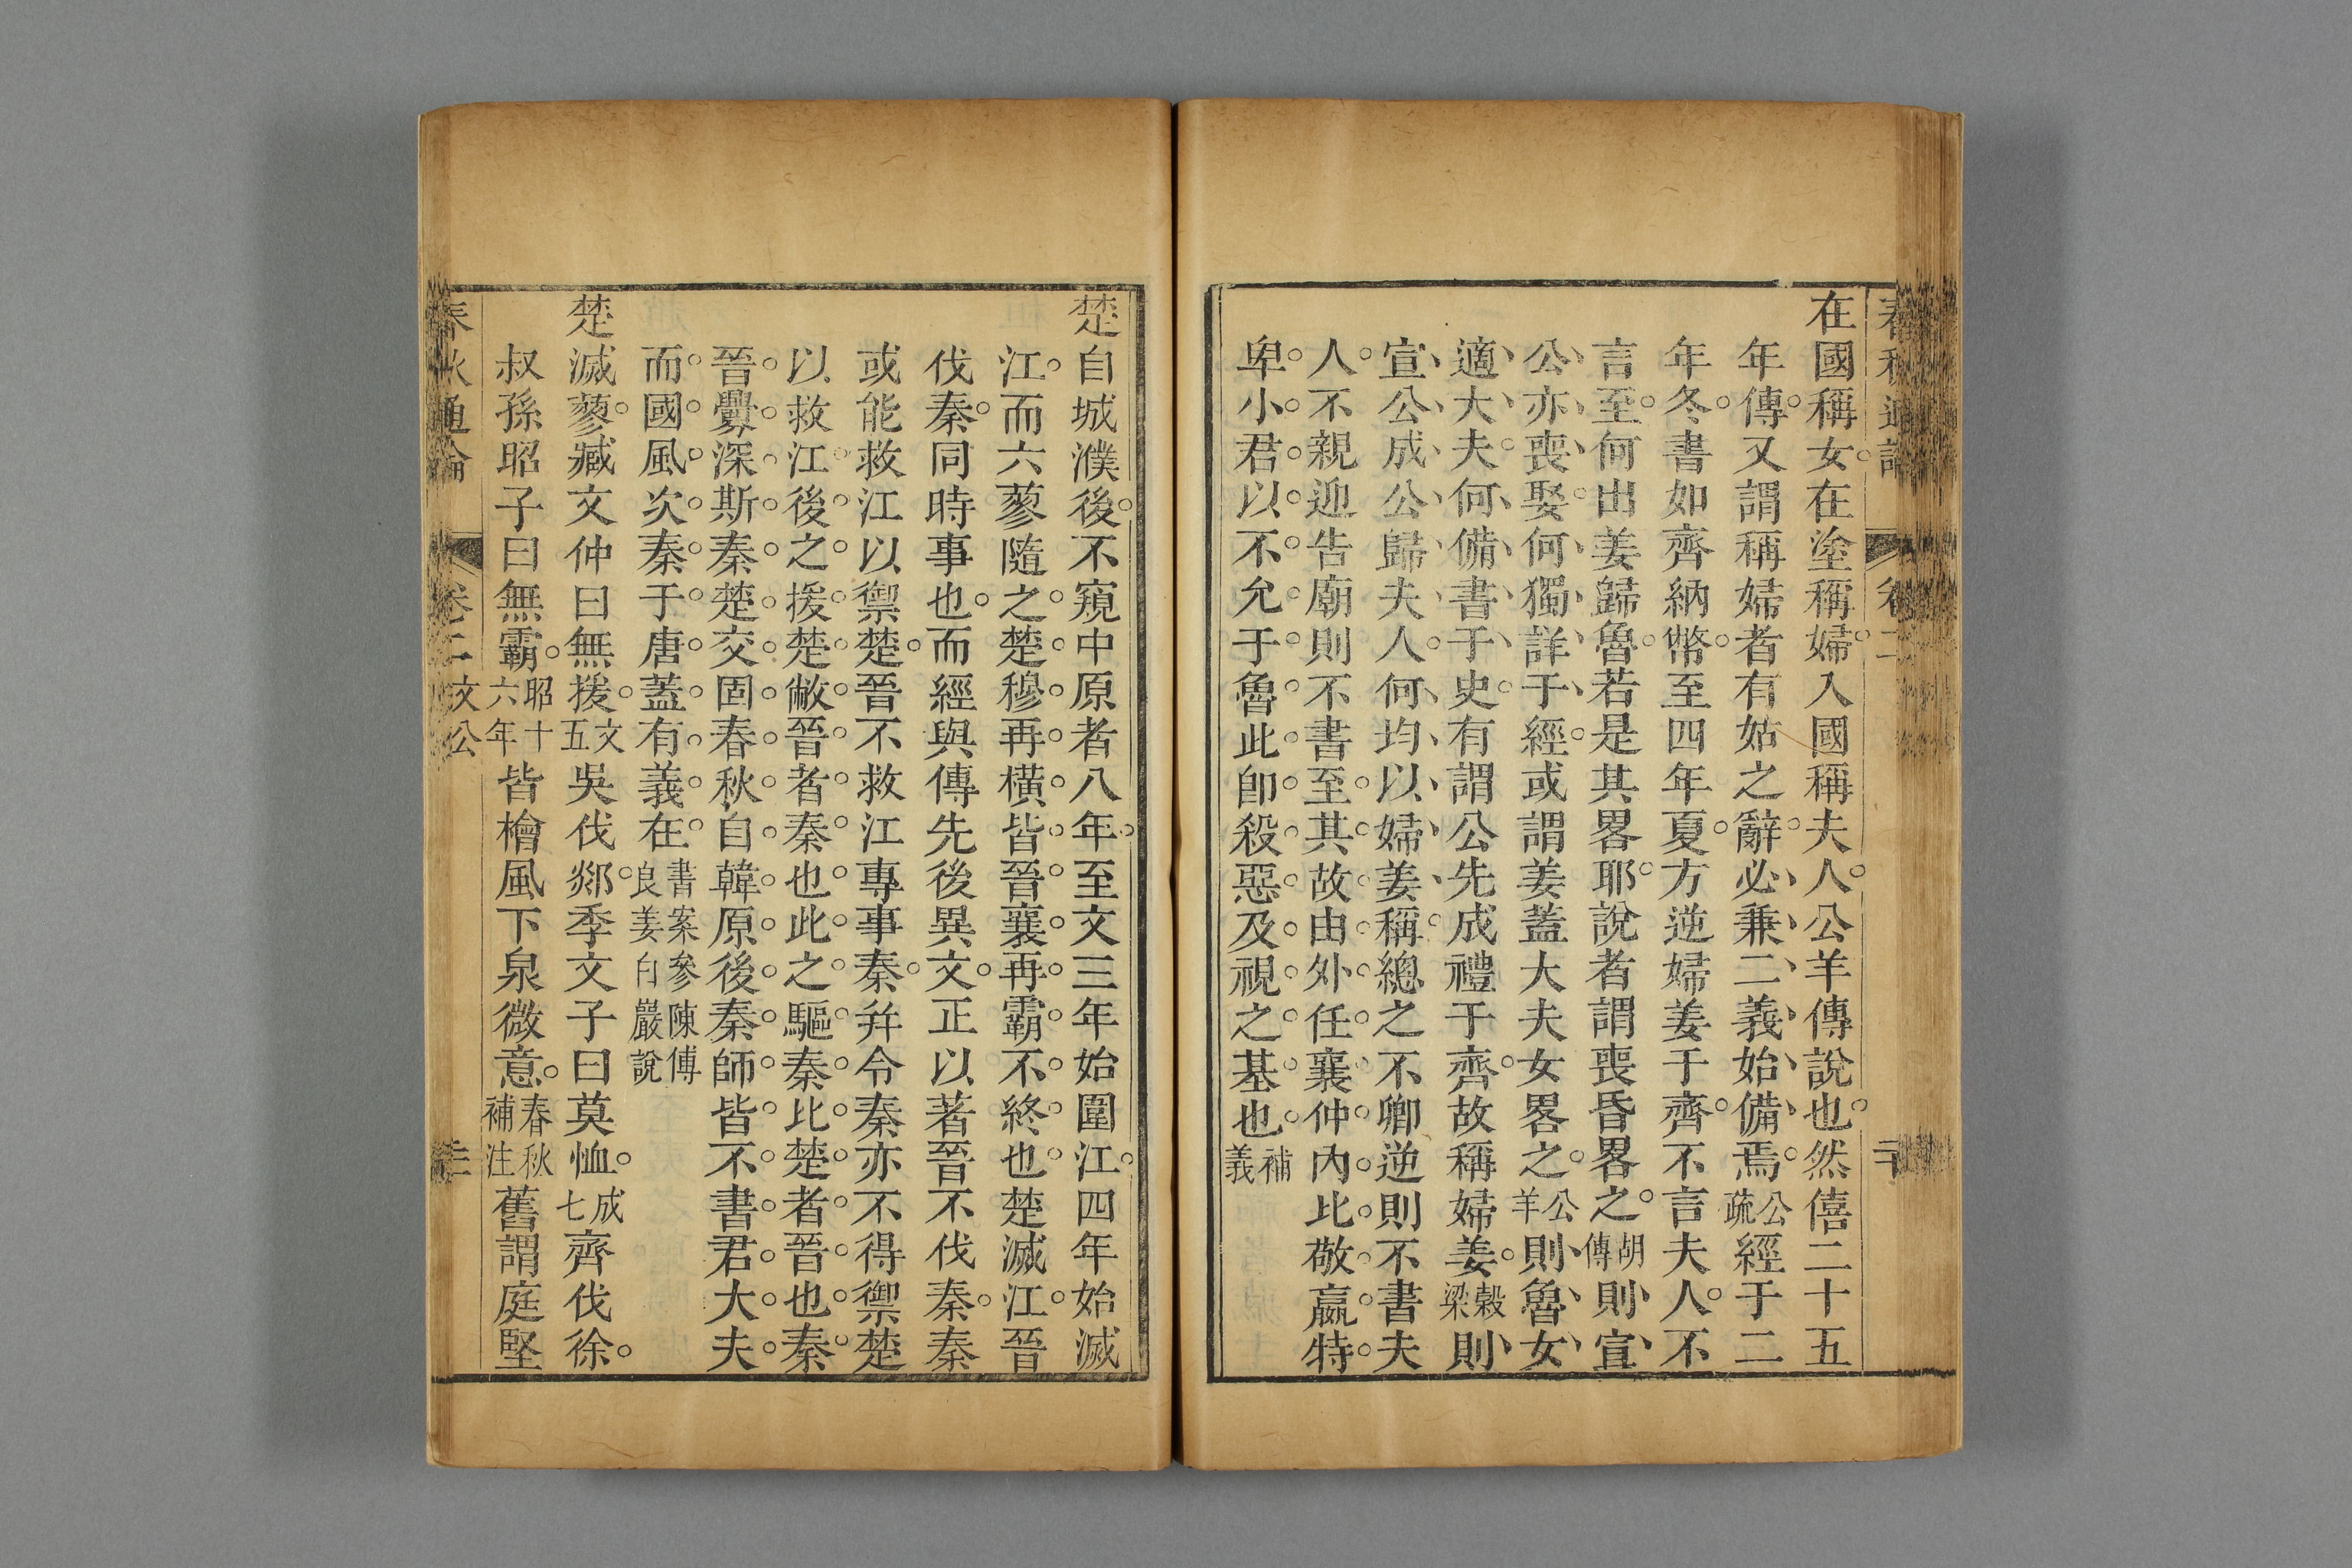 在國稱女在塗稱婦入國稱夫人公羊傳說也然僖二十五
年傳又謂稱婦者有姑之辭必兼二義始備焉公疏經于二
年冬書如齊納幣至四年夏方逆婦姜于齊不言夫人不
言至何出姜歸魯若是其畧耶說者謂喪昏畧之胡傳則宣
公亦喪娶何獨詳于經或謂姜蓋大夫女畧之公羊則魯女
適大夫何備書于史有謂公先成禮于齊故稱婦姜穀梁則
宣公成公歸夫人何均以婦姜稱總之不卿逆則不書夫
人不親迎告廟則不書至其故由外任襄仲內比敬嬴特
卑小君以不允于魯此卽殺惡及視之基也補義
楚自城濮後不窺中原者八年至文三年始圍江四年始滅
江而六蓼隨之楚穆再橫皆晉襄再霸不終也楚滅江晉
伐秦同時事也而經與傳先後異文正以著晉不伐秦秦
或能救江以禦楚晉不救江專事秦并令秦亦不得禦楚
以救江後之援楚敝晉者秦也此之驅秦比楚者晉也秦
晉釁深斯秦楚交固春秋自韓原後秦師皆不書君大夫
而國風次秦于唐蓋有義在書案參陳傅良姜白巖說
楚滅蓼臧文仲曰無援文五吳伐郯季文子曰莫恤成七齊伐徐
叔孫昭子曰無霸昭十六年皆檜風下泉微意春秋補注舊謂庭堅
春秋通論 卷二 文公